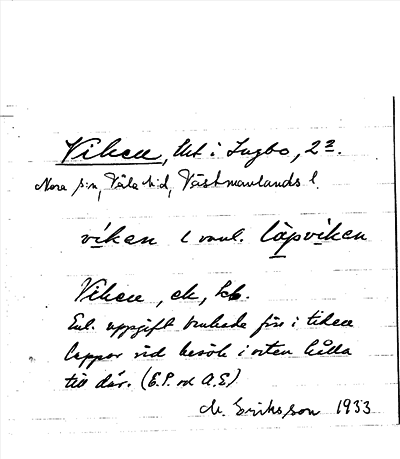 Viken, tkt i Ingbo, 2⁠2.
Nora s:n, Våla h:d, Västmanlands l.
viken l vanl. läpviken
Viken, ek, kb.
Enl. uppgift brukade förr i tiden
lappar vid besök i orten hålla
till där. (E.P. o A.E)
M. Eriksson 1933